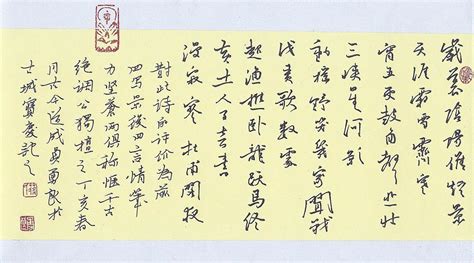 歲暮陰陽催短景
天涯霜雪霽寒
宵五更鼓角聲悲壯
三峽星河影
動搖野哭幾家聞戰
伐夷歌數處
起漁樵卧龍躍馬終
黃土人事音書
漫寂寥 杜甫閣夜
對此詩的評价為前
四写景後四言情筆
力堅蒼兩俱稱千古
絕調公獨擅之丁亥春
月於
古城寶慶記之